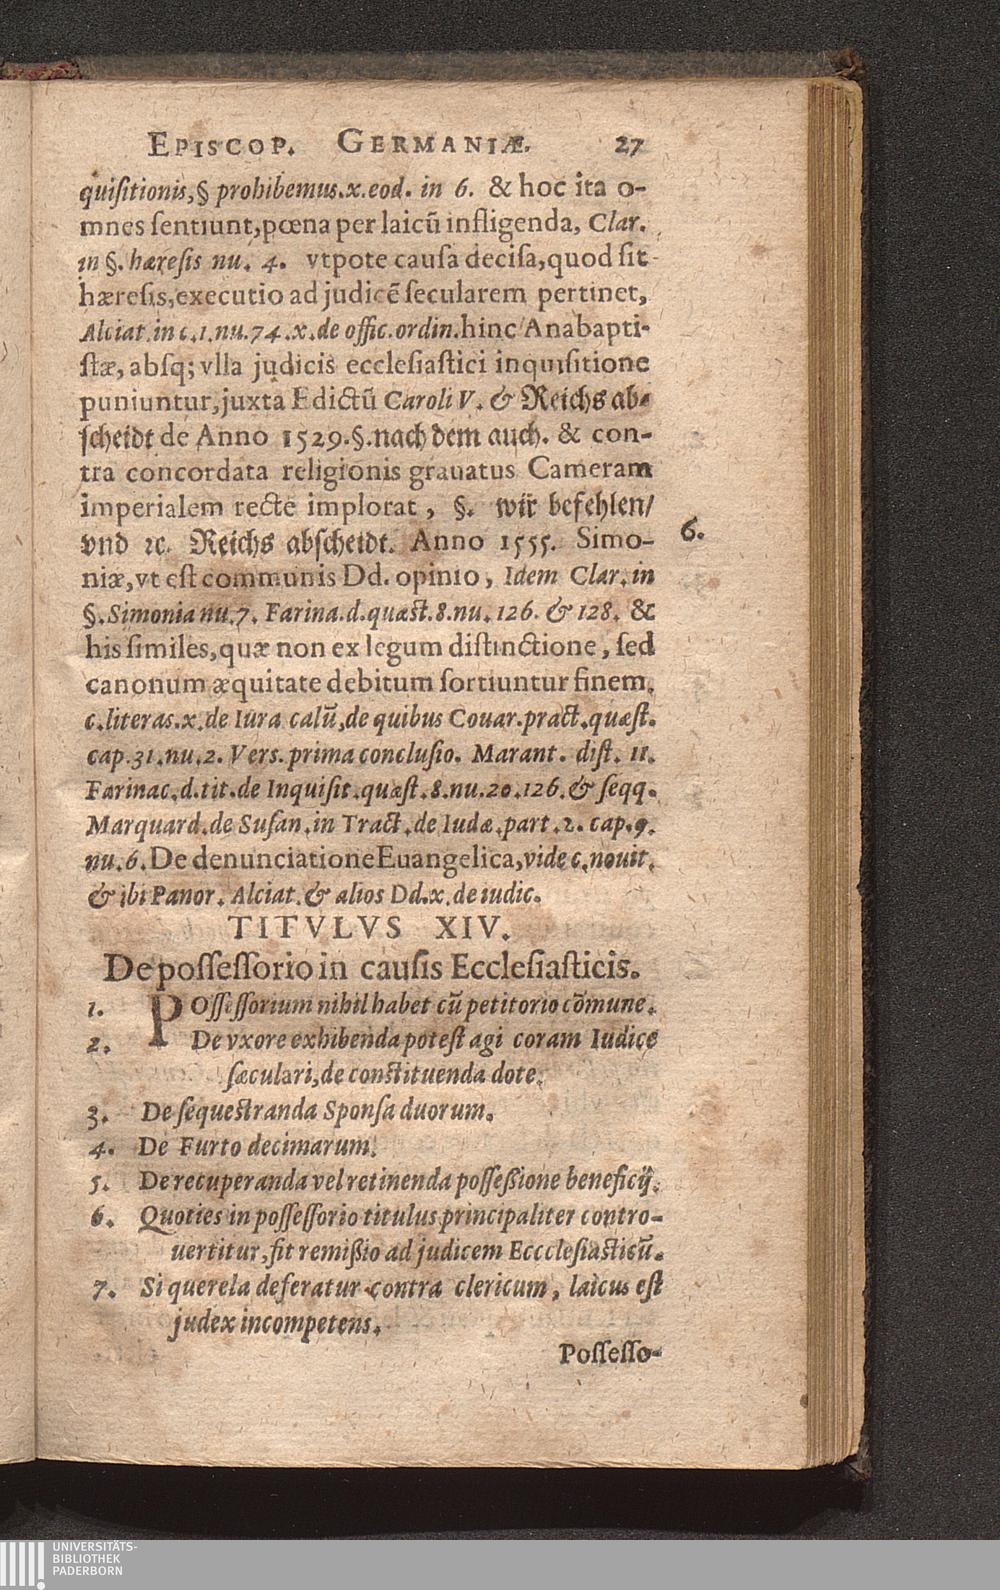 EPISCOP. GERMANIÆ. 27
quiſitionis,§ prohibemus.x.eod. in 6. & hoc ita o-
mnes ſentiunt,pœna per laicũ infligenda, Clar.
in §. hæreſis nu. 4. vtpote cauſa deciſa,quod ſit
hæreſis,executio ad judicẽ ſecularem pertinet,
Alciat.in c.1.nu.74.x.de offic.ordin.hinc Anabapti-
ſtæ, abſq; vlla judicis eccleſiaſtici inquiſitione
puniuntur,juxta Edictũ Caroli V. & Reichs ab-
ſcheidt de Anno 1529.§.nach dem auch. & con-
tra concordata religionis grauatus Cameram
imperialem recte implorat, §. wir befehlen/
vnd ꝛc. Reichs abſcheidt. Anno 1555. Simo- 6.
niæ,vt eſt communis Dd. opinio, Idem Clar. in
§.Simonia nu.7. Farina.d.quæſt.8.nu.126. & 128. &
his ſimiles,quæ non ex legum diſtinctione, ſed
canonum æquitate debitum ſortiuntur finem.
c.literas.x.de Iura calũ,de quibus Couar.pract.quæſt.
cap.31.nu.2. Verſ. prima concluſio. Marant. diſt. 11.
Farinac.d.tit.de Inquiſit.quæſt.8.nu.20.126.& ſeqq.
Marquard.de Suſan.in Tract.de Iudæ.part.2. cap.9.
nu.6.De denunciatione Euangelica,vide c.nouit.
& ibi Panor. Alciat.& alios Dd.x.de iudic.
TITVLVS XIV.
De poſſeſſorio in cauſis Eccleſiaſticis.
1. POſſeſſorium nihil habet cũ petitorio cõmune.
2. De vxore exhibenda poteſt agi coram Iudice
ſæculari,de conſtituenda dote.
3. De ſequeſtranda Sponſa duorum.
4. De Furto decimarum.
5. De recuperanda vel retinenda poſſeßione beneficij.
6. Quoties in poſſeſſorio titulus principaliter contro-
uertitur,fit remißio ad judicem Eccclefiaſticũ.
7. Si querela deferatur contra clericum, laicus eſt
judex incompetens.
Poſſeſſo-
UNIVERSITÄTS-
BIBLIOTHEK
PADERBORN